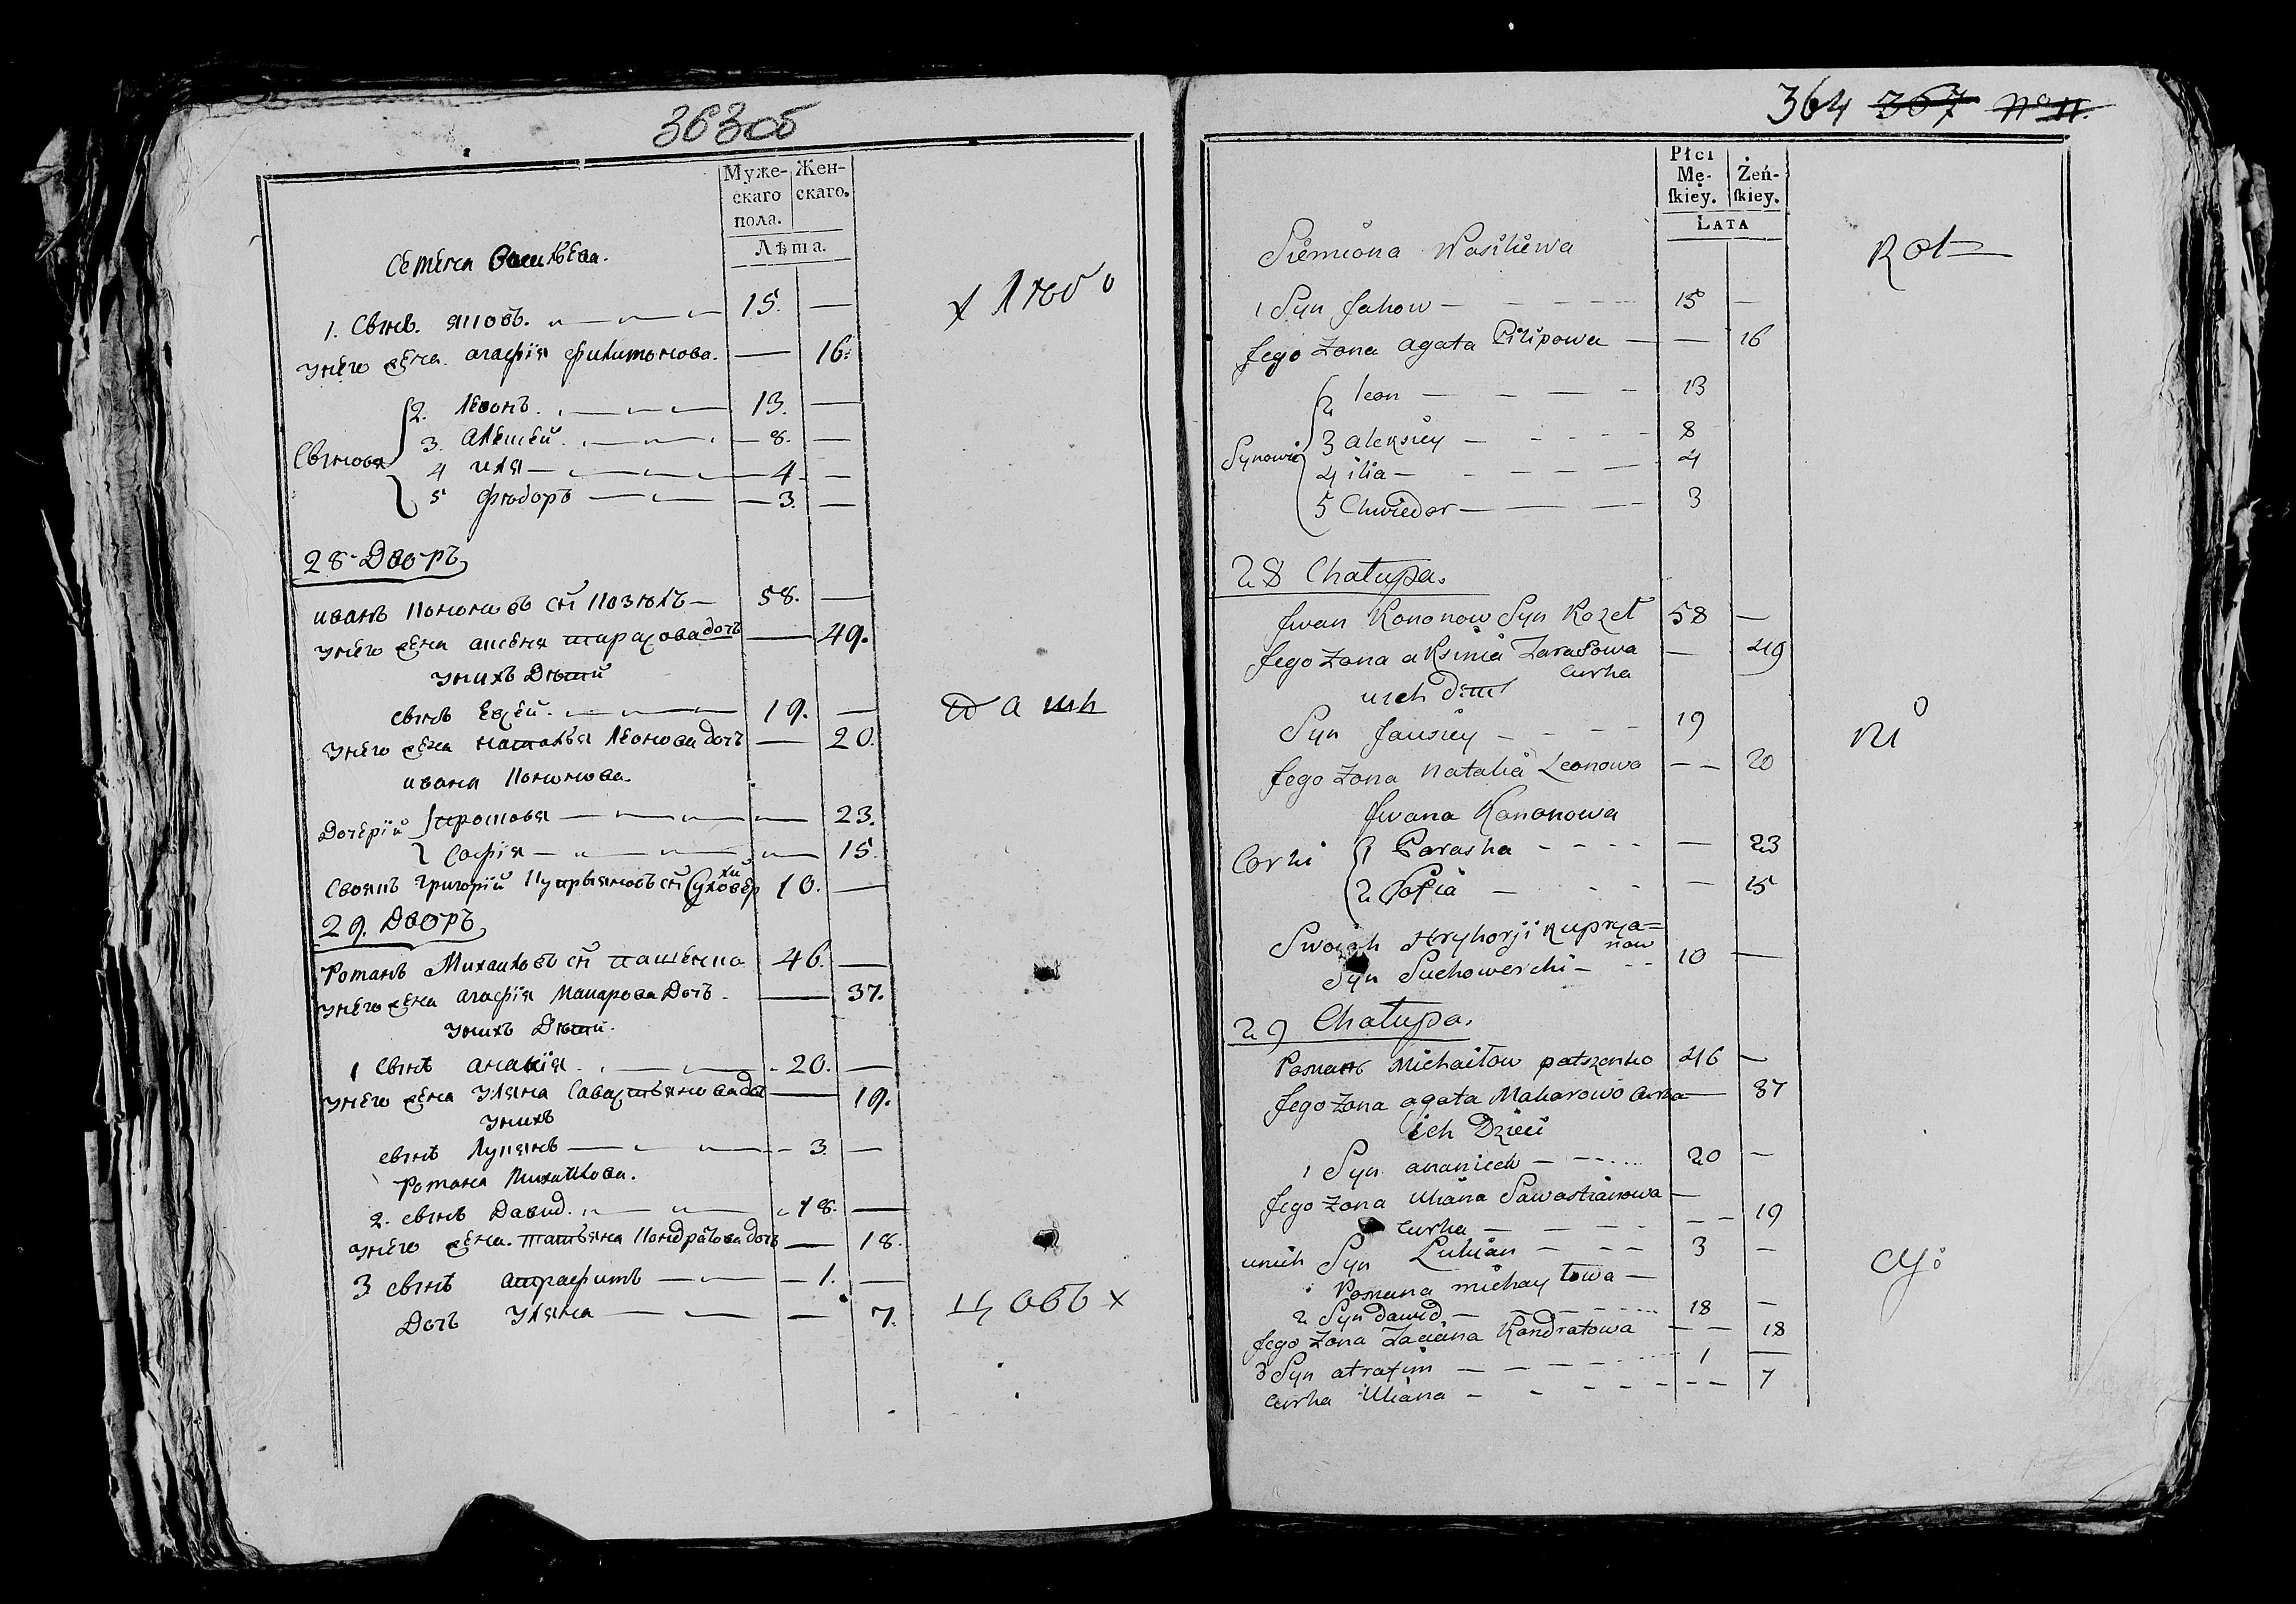 363об
Муже-
скаго
пола.
Жен-
скаго.
Лѣта.
Семена Василѣева.
1. Сынъ. яковъ. 15. —
унего жена. агафія филимонова. — 16.
Сыновя
2. Левонъ. 13. —
3. Алексей. 8. —
4 иля — 4. —
5 фюдоръ — 3. —
28 Дворъ
иванъ Кононовъ сн Козюлъ — 58. —
унего жена аксеня тарасова дочь — 49.
унихъ Дѣти
сынъ Евсей. 19. —
унего жена наталья Леонова дочь — 20.
ивана Кононова.
Дочерій
Прасковя — 23.
Софія — 15.
Своякъ Григорій Купрьяновъ сн Суховерхій 10. —
29. Дворъ
Романъ Михаиловъ сн пашенко 46. —
унего жена агафія Макарова Дочь. — 37.
унихъ Дѣти.
1 Сынъ ананія. 20. —
унего жена Уляна Савастьянова до — 19.
унихъ
сынъ Лукянъ — 3. —
Романа Михаилова.
2. сынъ Давид. 18. —
унего жена. татьяна Кондратова дочь — 18.
3 сынъ атрафимъ — 1. —
Дочь Уляна — 7.
364 367 No 11.
Płci
Mę-
skiey.
Żeń-
skiey.
LATA
Siemiona Wasiliewa
1 Syn Jakow — 15 —
Jego Zona agata Pilipowa — — 16
Synowie
2 leon — 13
3 aleksiey — 8
4 ilia — 4
5 Chwiedor — 3
28 Chałupa.
Jwan Kononow Syn Kozeł 58 —
Jego Zona aksinia Tarasowa — 49
Curka
Syn Jausiey — 19
Jego Zona Natalia Leonowa — — 20
Jwana Kononowa
Corki
1 Paraska — 23
2 Sofia — 15
Swojak Hryhorji Kuprya=
now
Syn Suchowerchi — 10 —
29 Chałupa.
Roman Michaiłow patszenko 46 —
Jego Zona agata Makarowo Curka — 37
ich Dzieci
1 Syn ananiech — 20 —
Jego Zona Uliana Sawastianowa —
Curka — 19
unich Syn Lukian — 3 —
Romana michayłowa —
2 Syn Dawid — 18 —
Jego Zona Taciana Kondratowa — — 18
3 Syn atrafim — 1 —
Curka Uliana — — 7